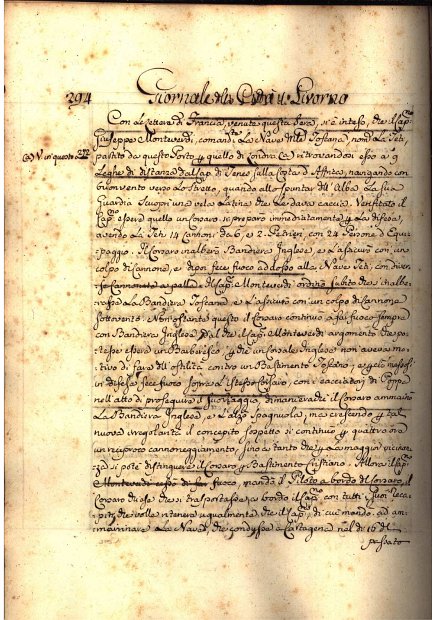 294 Giornale della Città di Livorno
Con le Lettere di Francia, venute questa sera, si è inteso, che il Cap.no
Giuseppe Monteverdi, comand.te la Nave Toscana, nom.ta La Teti,
(a) V. in questo 272
partito da questo Porto p quello di Londra (a) ritrovandosi esso a 9
Leghe di distanza dal Cap. di Tenes sulla Costa d'Affrica, navigando con
buon vento verso lo Stretto, quando allo spuntar dell'Alba la sua
Guardia scuoprì una vela Latina che le dava caccia. Verificato il
Cap.no essere quello un Corsaro, si preparò immediatamente p la difesa,
avendo La Teti 14 Cannoni da 6, e 2 Petrieri, con 24 Persone d'Equi
paggio. Il Corsaro inalberò Bandiera Inglese, e l'assicurò con un
colpo di Cannone, e dipoi fece fuoco addosso alla Nave Teti, con diver
se Cannonate a palla. Il Cap. Monteverdi ordinò subito che s'inalbe
rasse la Bandiera Toscana, e l'assicurò con un colpo di Cannone
sottovento. Nonostante questo il Corsaro continuò a far fuoco sempre
con Bandiera Inglese, dal che il Cap. Monteverdi argomentò che po
tesse essere un Barbaresco, p che un Corsale Inglese non aveva mo
tivo di fare dell'ostilità contro un Bastimento Toscano, e p ciò messosi
in difesa fece fuoco sopra l'istesso Corsaro, con i cacciatori di Poppa
nell'atto di proseguire il suo viaggio; di mano in mano il Corsaro ammainò
la Bandiera Inglese, e l'alzò Spagnuola, ma crescendo p tal
nuova irregolarità il concepito sospetto si continuò p quattro ore
un reciproco cannoneggiamento, sino a tanto che p la maggior vicinan
za si potè distinguere il Corsaro p Bastimento Cristiano. Allora il Cap.
Monteverdi cessò di far fuoco, mandò il Piloto a bordo del Corsaro, il
Corsaro chiese che si trasportasse a bordo il Cap.no con tutti i suoi
che volle ritenere ugualmente, che il Cap. di cui mandò ad am
marinare la Nave, che condusse a Cartagena nel dì 16 del
passato